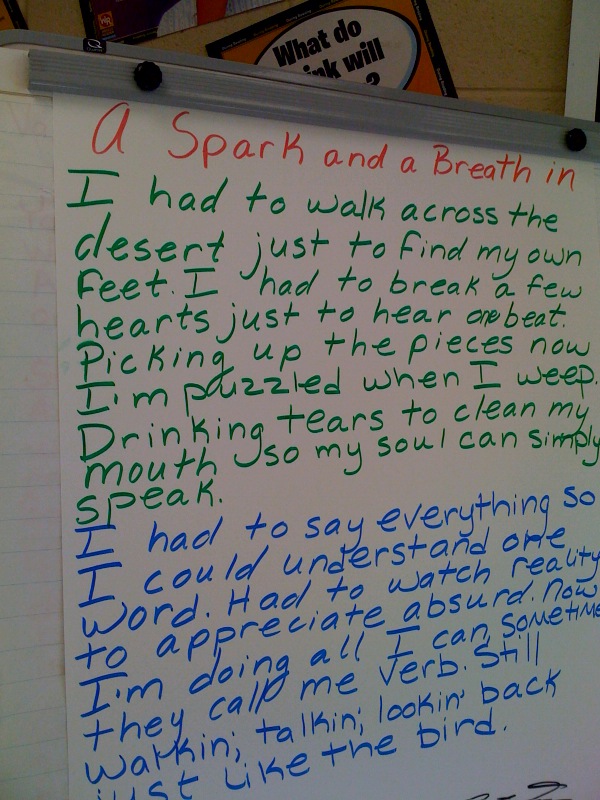 What do
will
?
A Spark and a Breath in
I had to walk across the
desert just to find my own
feet. I had to break a few
hearts just to hear one beat.
Picking up the pieces now
I'm puzzled when I weep.
Drinking tears to clean my
mouth so my soul can simply
speak.
I had to say everything so
I could understand one
word. Had to watch reality
to appreciate absurd. Now
I'm doing all I can, sometime
they call me verb. Still
walkin', talkin', lookin' back
just like the bird.